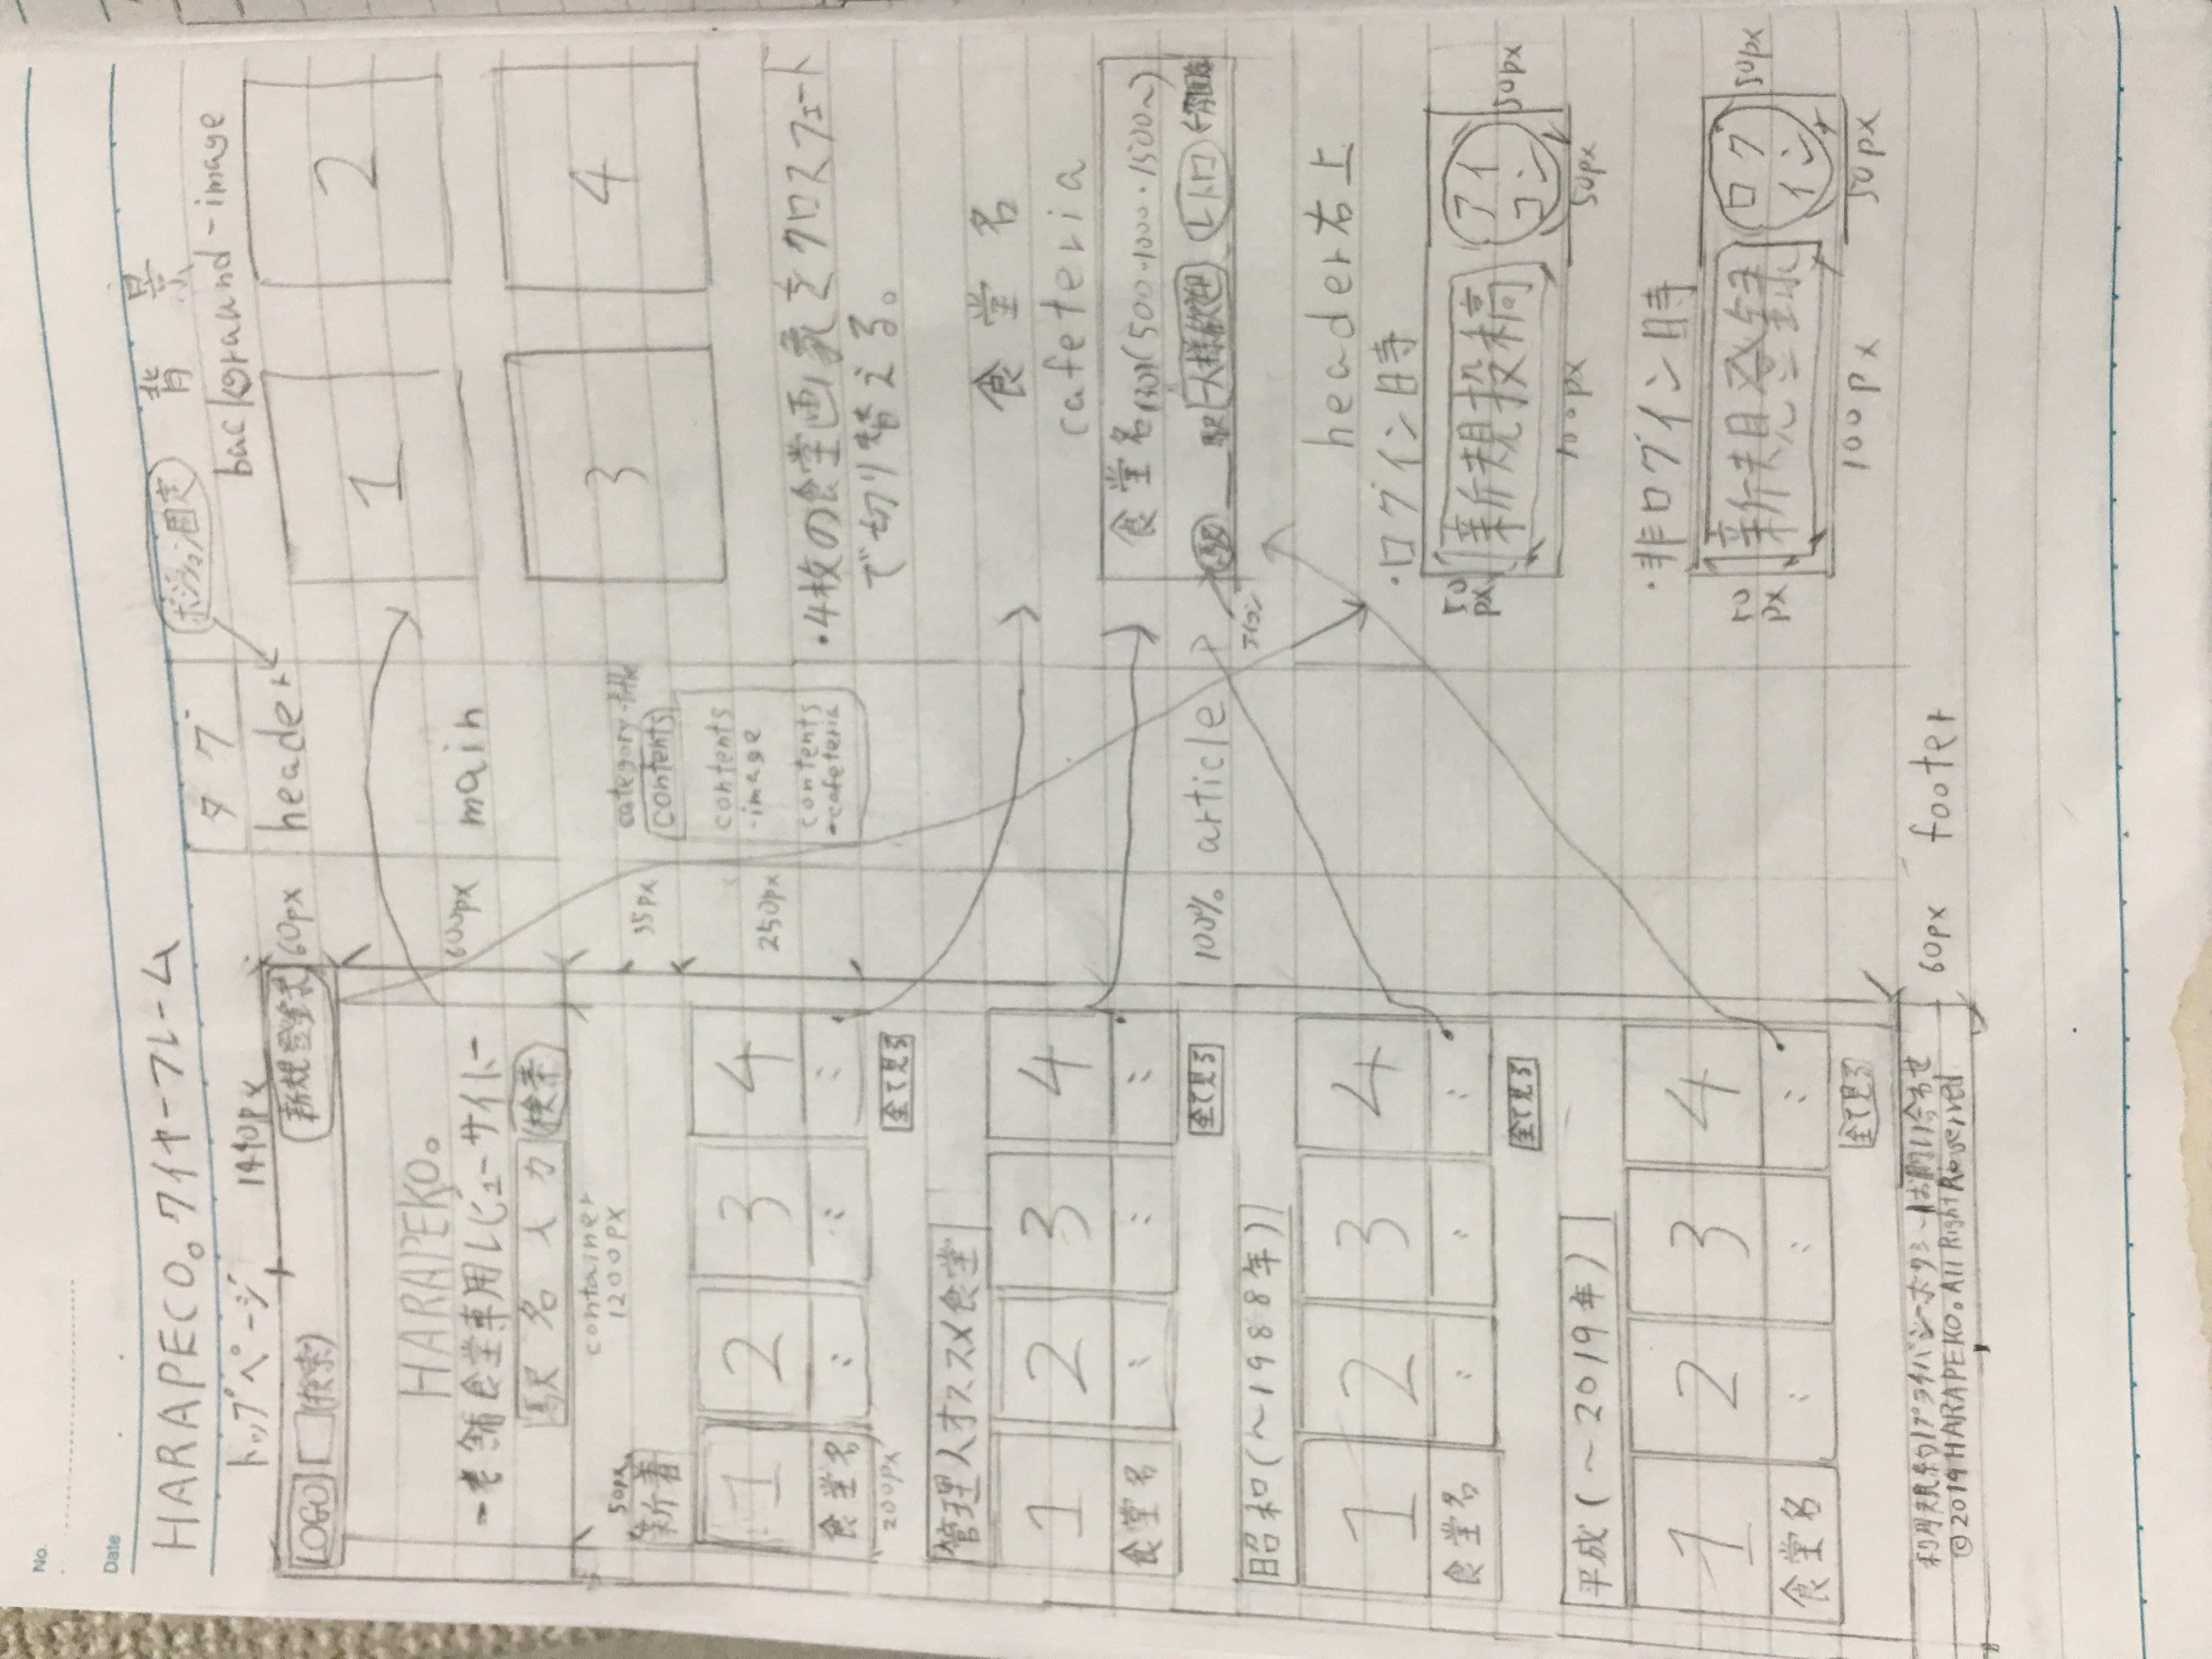 No.
Date
HARAPECO。ワイヤーフレーム
トップページ
1440px
LOGO (検索) 新規登録
60px
HARAPEKO。
-老舗食堂専用レビューサイト-
駅名入力 検索
600px
container
1200px
50px
新着
35px
1 2 3 4
250px
食堂名 : : :
200px
全て見る
管理人オススメ食堂
1 2 3 4
食堂名 : : :
全て見る
100%
昭和(～1988年)
1 2 3 4
食堂名 : : :
全て見る
平成(～2019年)
1 2 3 4
食堂名 : : :
全て見る
利用規約|プライバシーポリシー|お問い合わせ
©2019 HARAPEKO。All Right Reserved
60px
タグ
header
main
category-title
contents
contents
-image
contents
-cafeteria
article
footer
ポジション固定
背景
backgraund-image
1 2
3 4
・4枚の食堂画像をクロスフェード
で切り替える。
食堂名
cafeteria
食堂名 (500・1000・1500～)
駅 駅 一人様歓迎 レトロ
アイコン
header右上
・ログイン時
50
px
新規投稿
アイ
コン
50px
100px
50px
・非ログイン時
50
px
新規登録
ログ
イン
50px
100px
50px